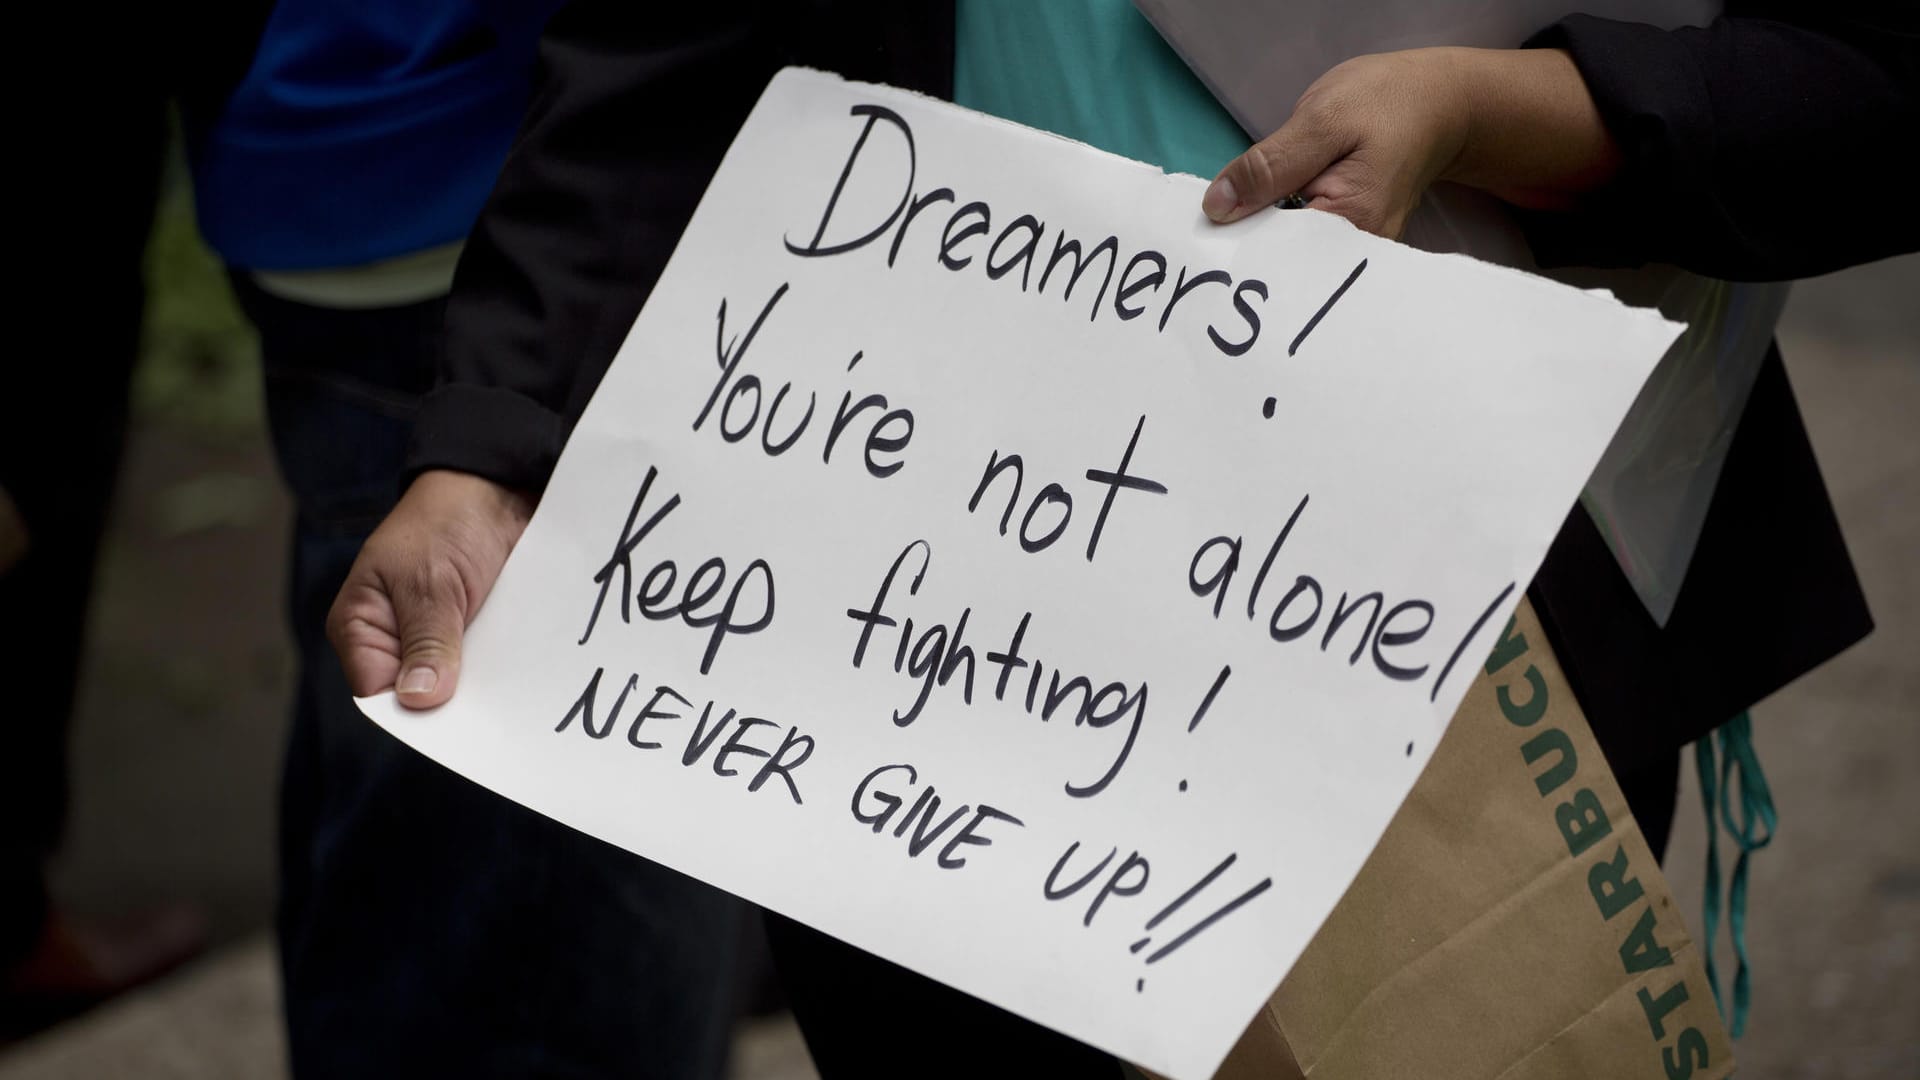 Dreamers!
You're not alone!
Keep fighting!
NEVER GIVE UP!!
STARBUCK